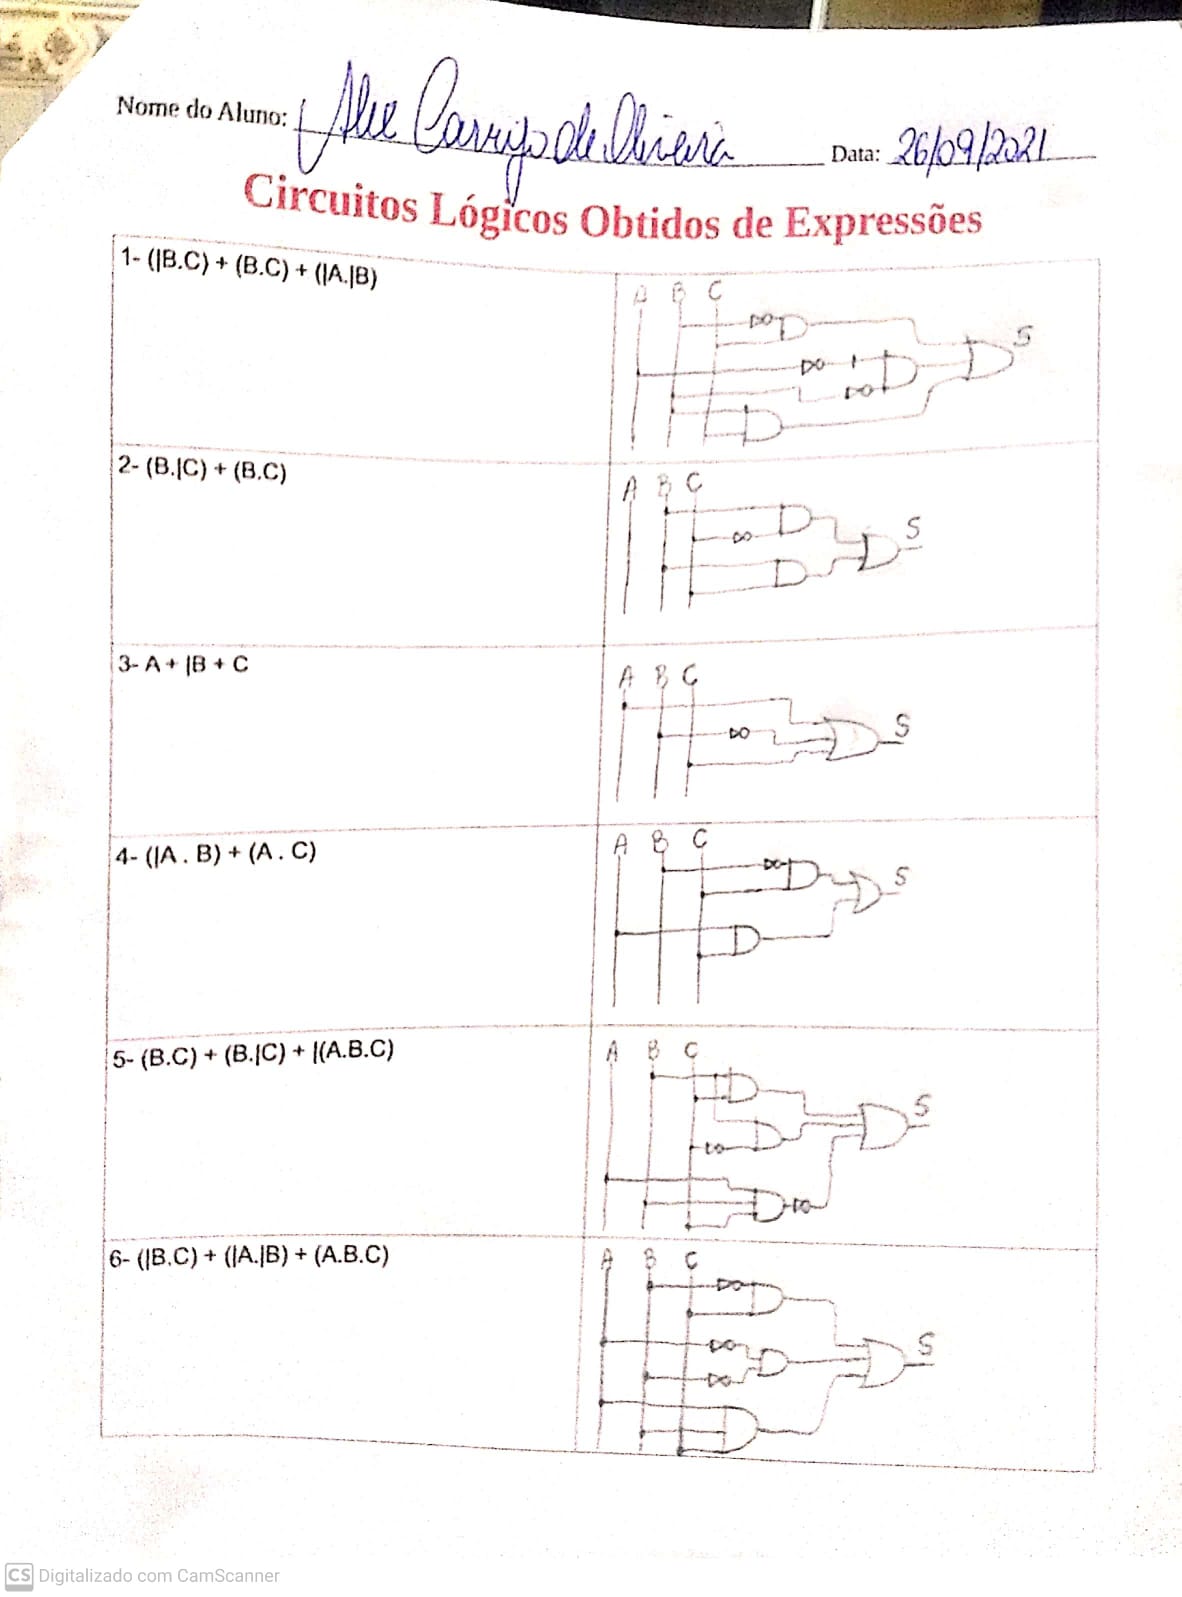 Nome do Aluno: Alex Carrijo de Oliveira Data: 26/09/2021
Circuitos Lógicos Obtidos de Expressões
1- (|B.C) + (B.C) + (|A.|B)
A B C
S
2- (B.|C) + (B.C)
A B C
S
3- A + |B + C
A B C
S
4- (|A . B) + (A . C)
A B C
S
5- (B.C) + (B.|C) + |(A.B.C)
A B C
S
6- (|B.C) + (|A.|B) + (A.B.C)
A B C
S
CS Digitalizado com CamScanner